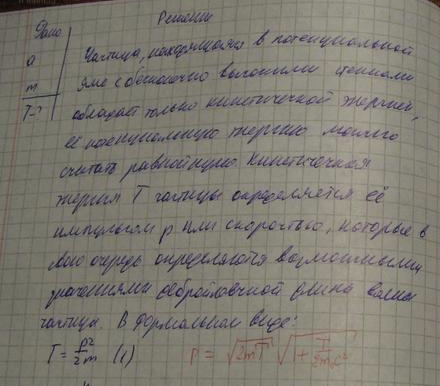 Дано
Решение
a
m
T-?
Частица, находящаяся в потенциальной
яме с бесконечно высокими стенками
обладает только кинетической энергией,
её потенциальную энергию можно
считать равной нулю. Кинетическая
энергия T частицы определяется её
импульсом p или скоростью, которые в
свою очередь определяются возможными
значениями дебройлевской длины волны
частицы. В формальном виде:
T = p²/2m (1) p = √2mT √1 + T/2mc²